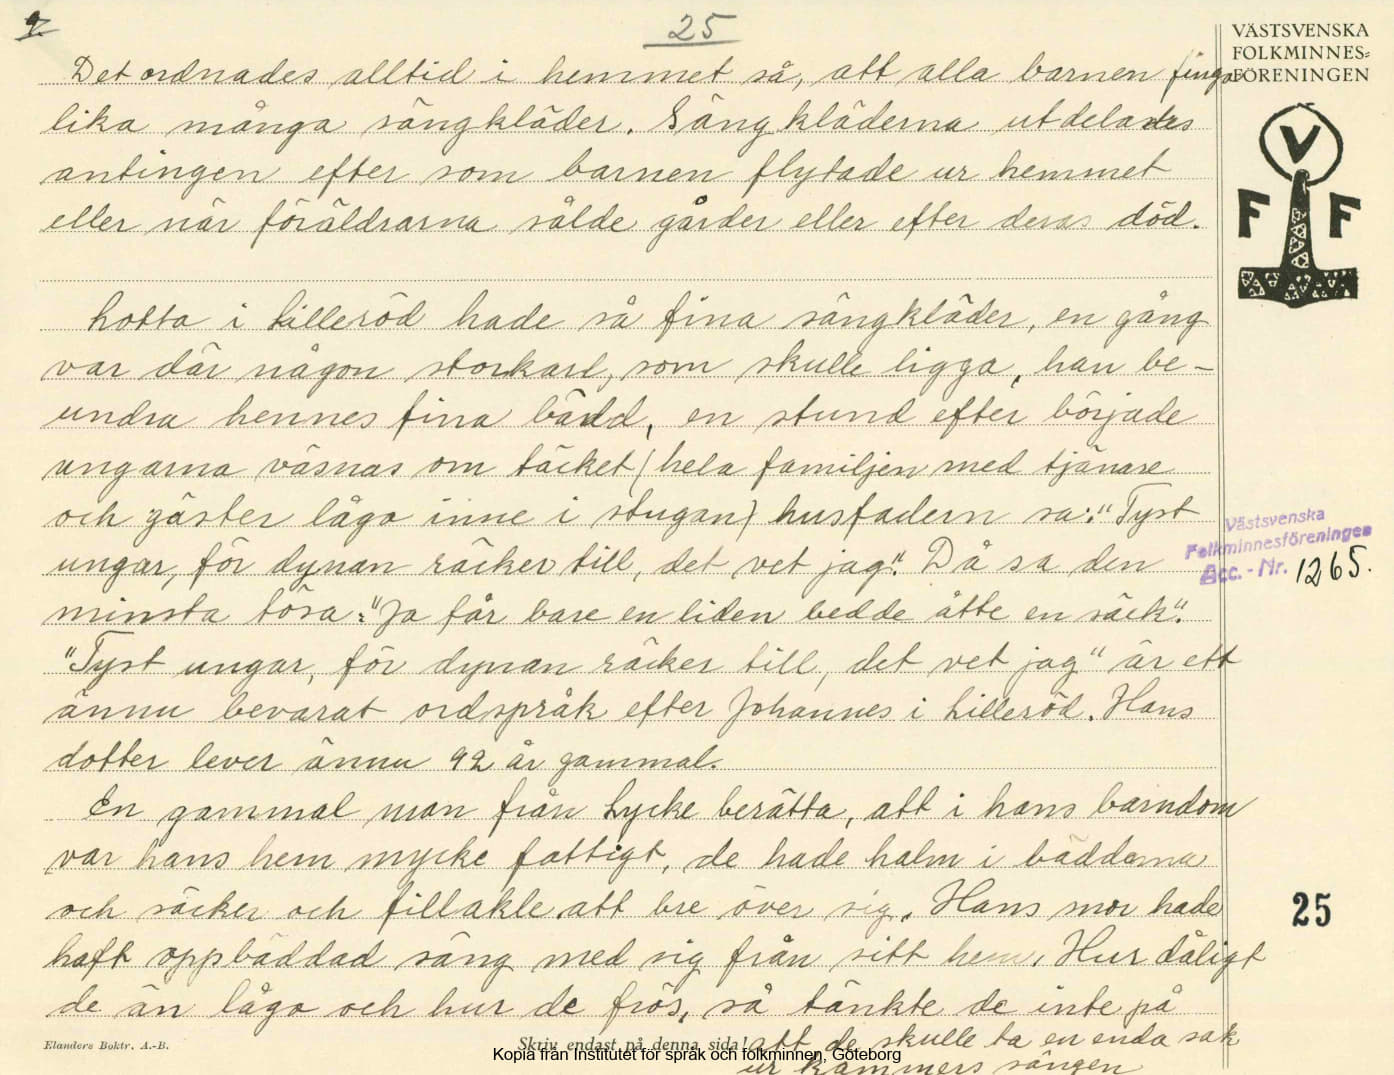 9.
25
VÄSTSVENSKA
FOLKMINNES-
FÖRENINGEN
V
F F
Det ordnades alltid i hemmet så, att alla barnen fingo
lika många sängkläder. Sängkläderna utdelades
antingen efter som barnen flytade ur hemmet
eller när föräldrarna sålde gården eller efter deras död.
Lotta i Lilleröd hade så fina sängkläder, en gång
var där någon storkarl, som skulle ligga, han be-
undra hennes fina bädd, en stund efter började
ungarna väsnas om täcket (hela familjen med tjänare
och gäster lågo inne i stugan) husfadern sa: "Tyst
ungar, för dynan räcker till, det vet jag". Då sa den
minsta tösa: "Ja får bare en liden bedde åtte en säck".
"Tyst ungar, för dynan räcker till, det vet jag" är ett
ännu bevarat ordspråk efter Johannes i Lilleröd. Hans
dotter lever ännu 92 år gammal.
En gammal man från Lycke berätta, att i hans barndom
var hans hem mycke fattigt, de hade halm i bäddarna
och säcker och fillakle att bre över sig. Hans mor hade
haft oppbäddad säng med sig från sitt hem. Hur dåligt
de än lågo och hur de frös, så tänkte de inte på
att de skulle ta en enda sak
ur kammers sängen
Västsvenska
Folkminnesföreningen
Acc.-Nr. 1265.
25
Elanders Boktr. A.-B.
Skriv endast på denna sida!
Kopia från Institutet för språk och folkminnen, Göteborg